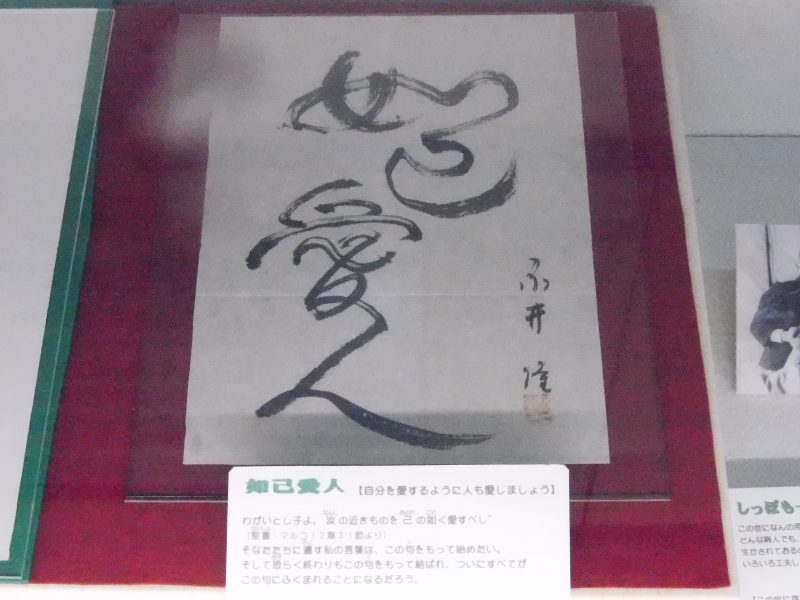 如己
愛人
永井隆
如己愛人 【自分を愛するように人も愛しましょう】
わがいとし子よ、"汝の近きものを己の如く愛すべし"
(聖書：マルコ12章31節より)
そなたたちに遺す私の言葉は、この句をもって始めたい。
そして恐らく終わりもこの句をもって結ばれ、ついにすべてが
この句にふくまれることになるだろう。
しっぽも
この世になんの用
どんな病人でも、
生かされてあるの
いろいろ工夫し